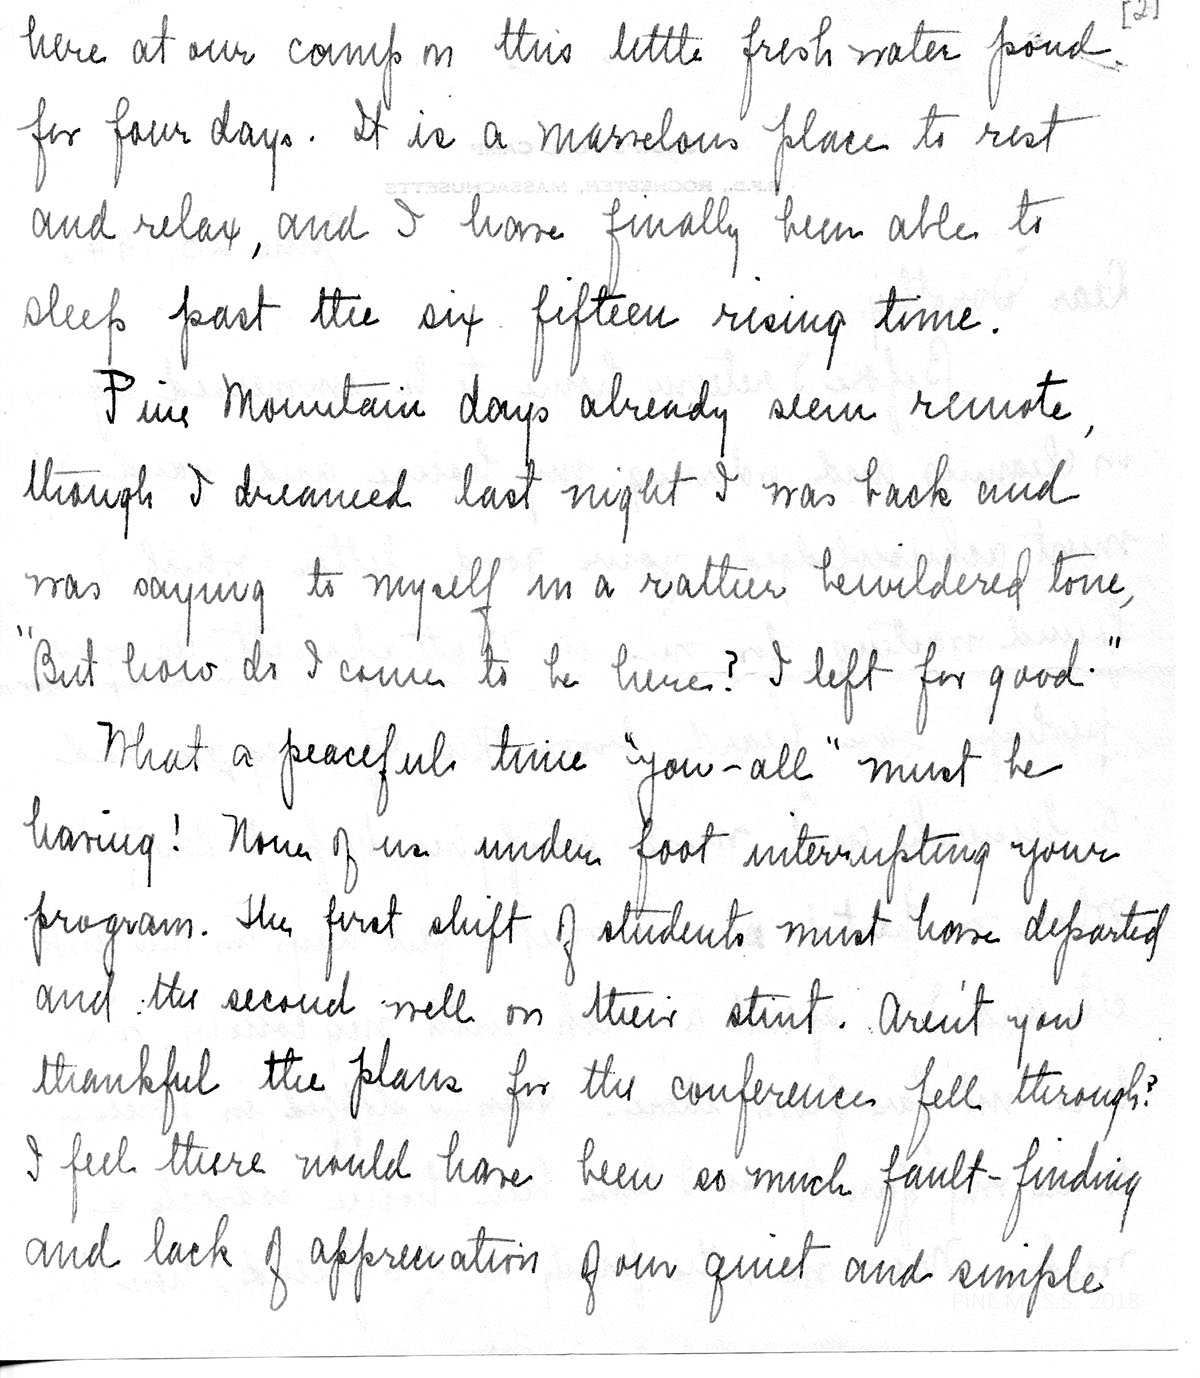 [2]
here at our camp on this little fresh water pond
for four days. It is a marvelous place to rest
and relax, and I have finally been able to
sleep past the six fifteen rising time.
Pine Mountain days already seem remote,
though I dreamed last night I was back and
was saying to myself in a rather bewildered tone,
"But how do I come to be here? I left for good."
What a peaceful time "you-all" must be
having! None of us under foot interrupting your
program. The first shift of students must have departed
and the second well on their stint. Aren't you
thankful the plans for the conference fell through?
I feel there would have been so much fault-finding
and lack of appreciation of our quiet and simple
PINE M.S.S. 2018